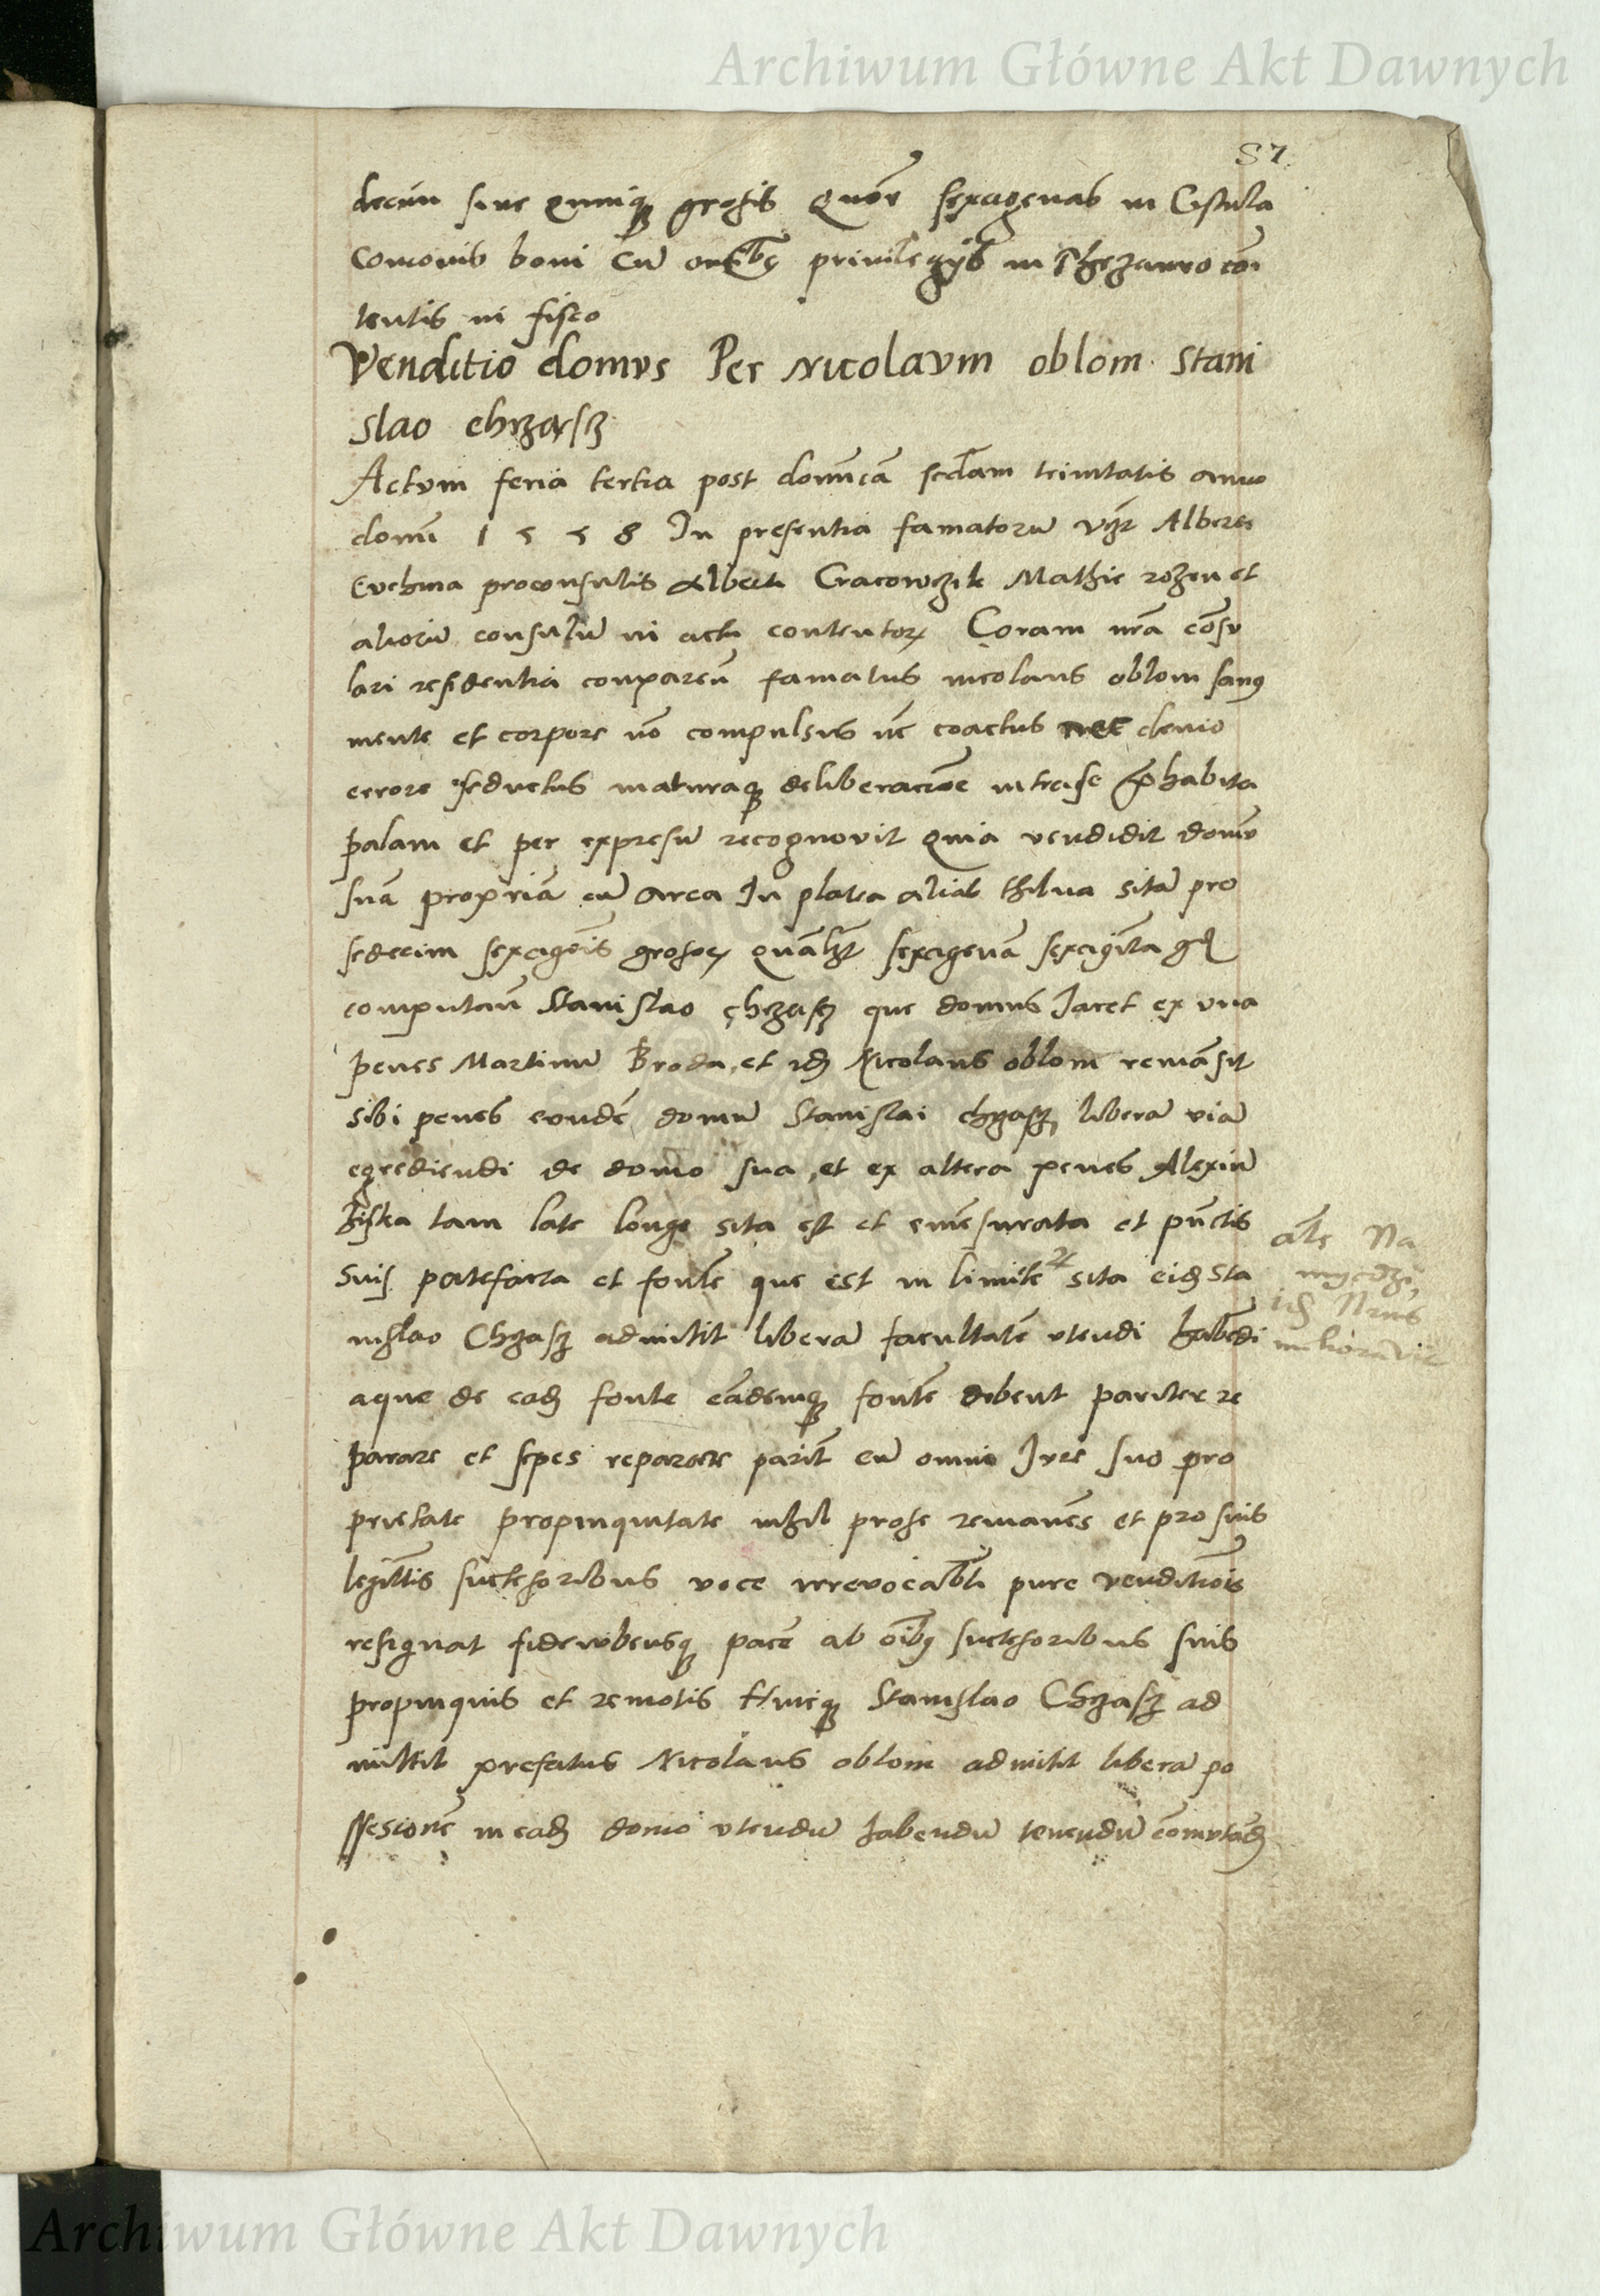 Archiwum Główne Akt Dawnych
57
decim sine quinqȝ grosis Quōr sexagenas in Cistula
Comonis boni Cū om̄ibꝫ privilegijs in Thezauro con
tentis in fisco
Venditio domus Per Nicolaum oblom Stani
slao chrzasz
Actum feria tertia post domīcā secdam trinitatis anno
domī 1 5 5 8 In presentia famatorū Alberti
proconsulis Alberti Cracowczik Mathie rozen et
aliorū consulū in actu contentorꝫ Coram nr̄a cōsu
lari residentia conparen̄ famatus nicolaus oblom sanꝰ
mente et corpore nō compulsus nē coactus nec devio
errore seductus maturaqȝ deliberacione intra se p̄habita
palam et per expresū recognovit Quia vendidit domū
suā propriā cū area In platea alias thilna sitā pro
sedecim sexagēis grosorꝫ quālꝫt sexagenā sexagīta gꝫ
computan̄ Stanislao chrzasz que domus Jacet ex una
penes Martinū Broda, et idꝫ Nicolaus oblom remāsit
sibi penes eandē domū Stanislai chrzasz liberā viā
egrediendi de domo sua, et ex altera penes Alexiū
tam late longe sita est et emēsurata et pūctis
suis patefacta et fontē que est in limite sita eidꝫ Sta
nislao Chrzasz admittit liberā facultatē utendi habēdi
aque de eadꝫ fonte eādemqȝ fontē debent pariter re
parare et sepes reparare parit̄ cū omni Jure suo pro
prietate propinquitate nihil pro se remanēs et pro suis
legittīs suctesoribus voce irrevocabl̄i pure venditiōis
resignat fideiubensqȝ pacē ab oībꝫ suctesoribus suis
propinquis et remotis Huicqȝ Stanislao Chrzasz ad
mittit prefatus Nicolaus oblom admitit liberā po
ssesionē in eadꝫ domo utendū habendū tenendū comutādꝫ
als Na
myedzi
idꝫ Nrus
Archiwum Główne Akt Dawnych